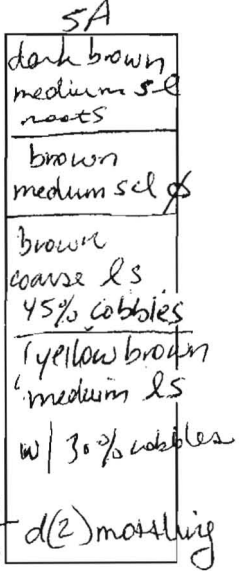 5A
dark brown
medium sl
roots
brown
medium scl
brown
coarse ls
45% cobbles
yellow brown
medium ls
w/ 30% cobbles
d(2) mottling